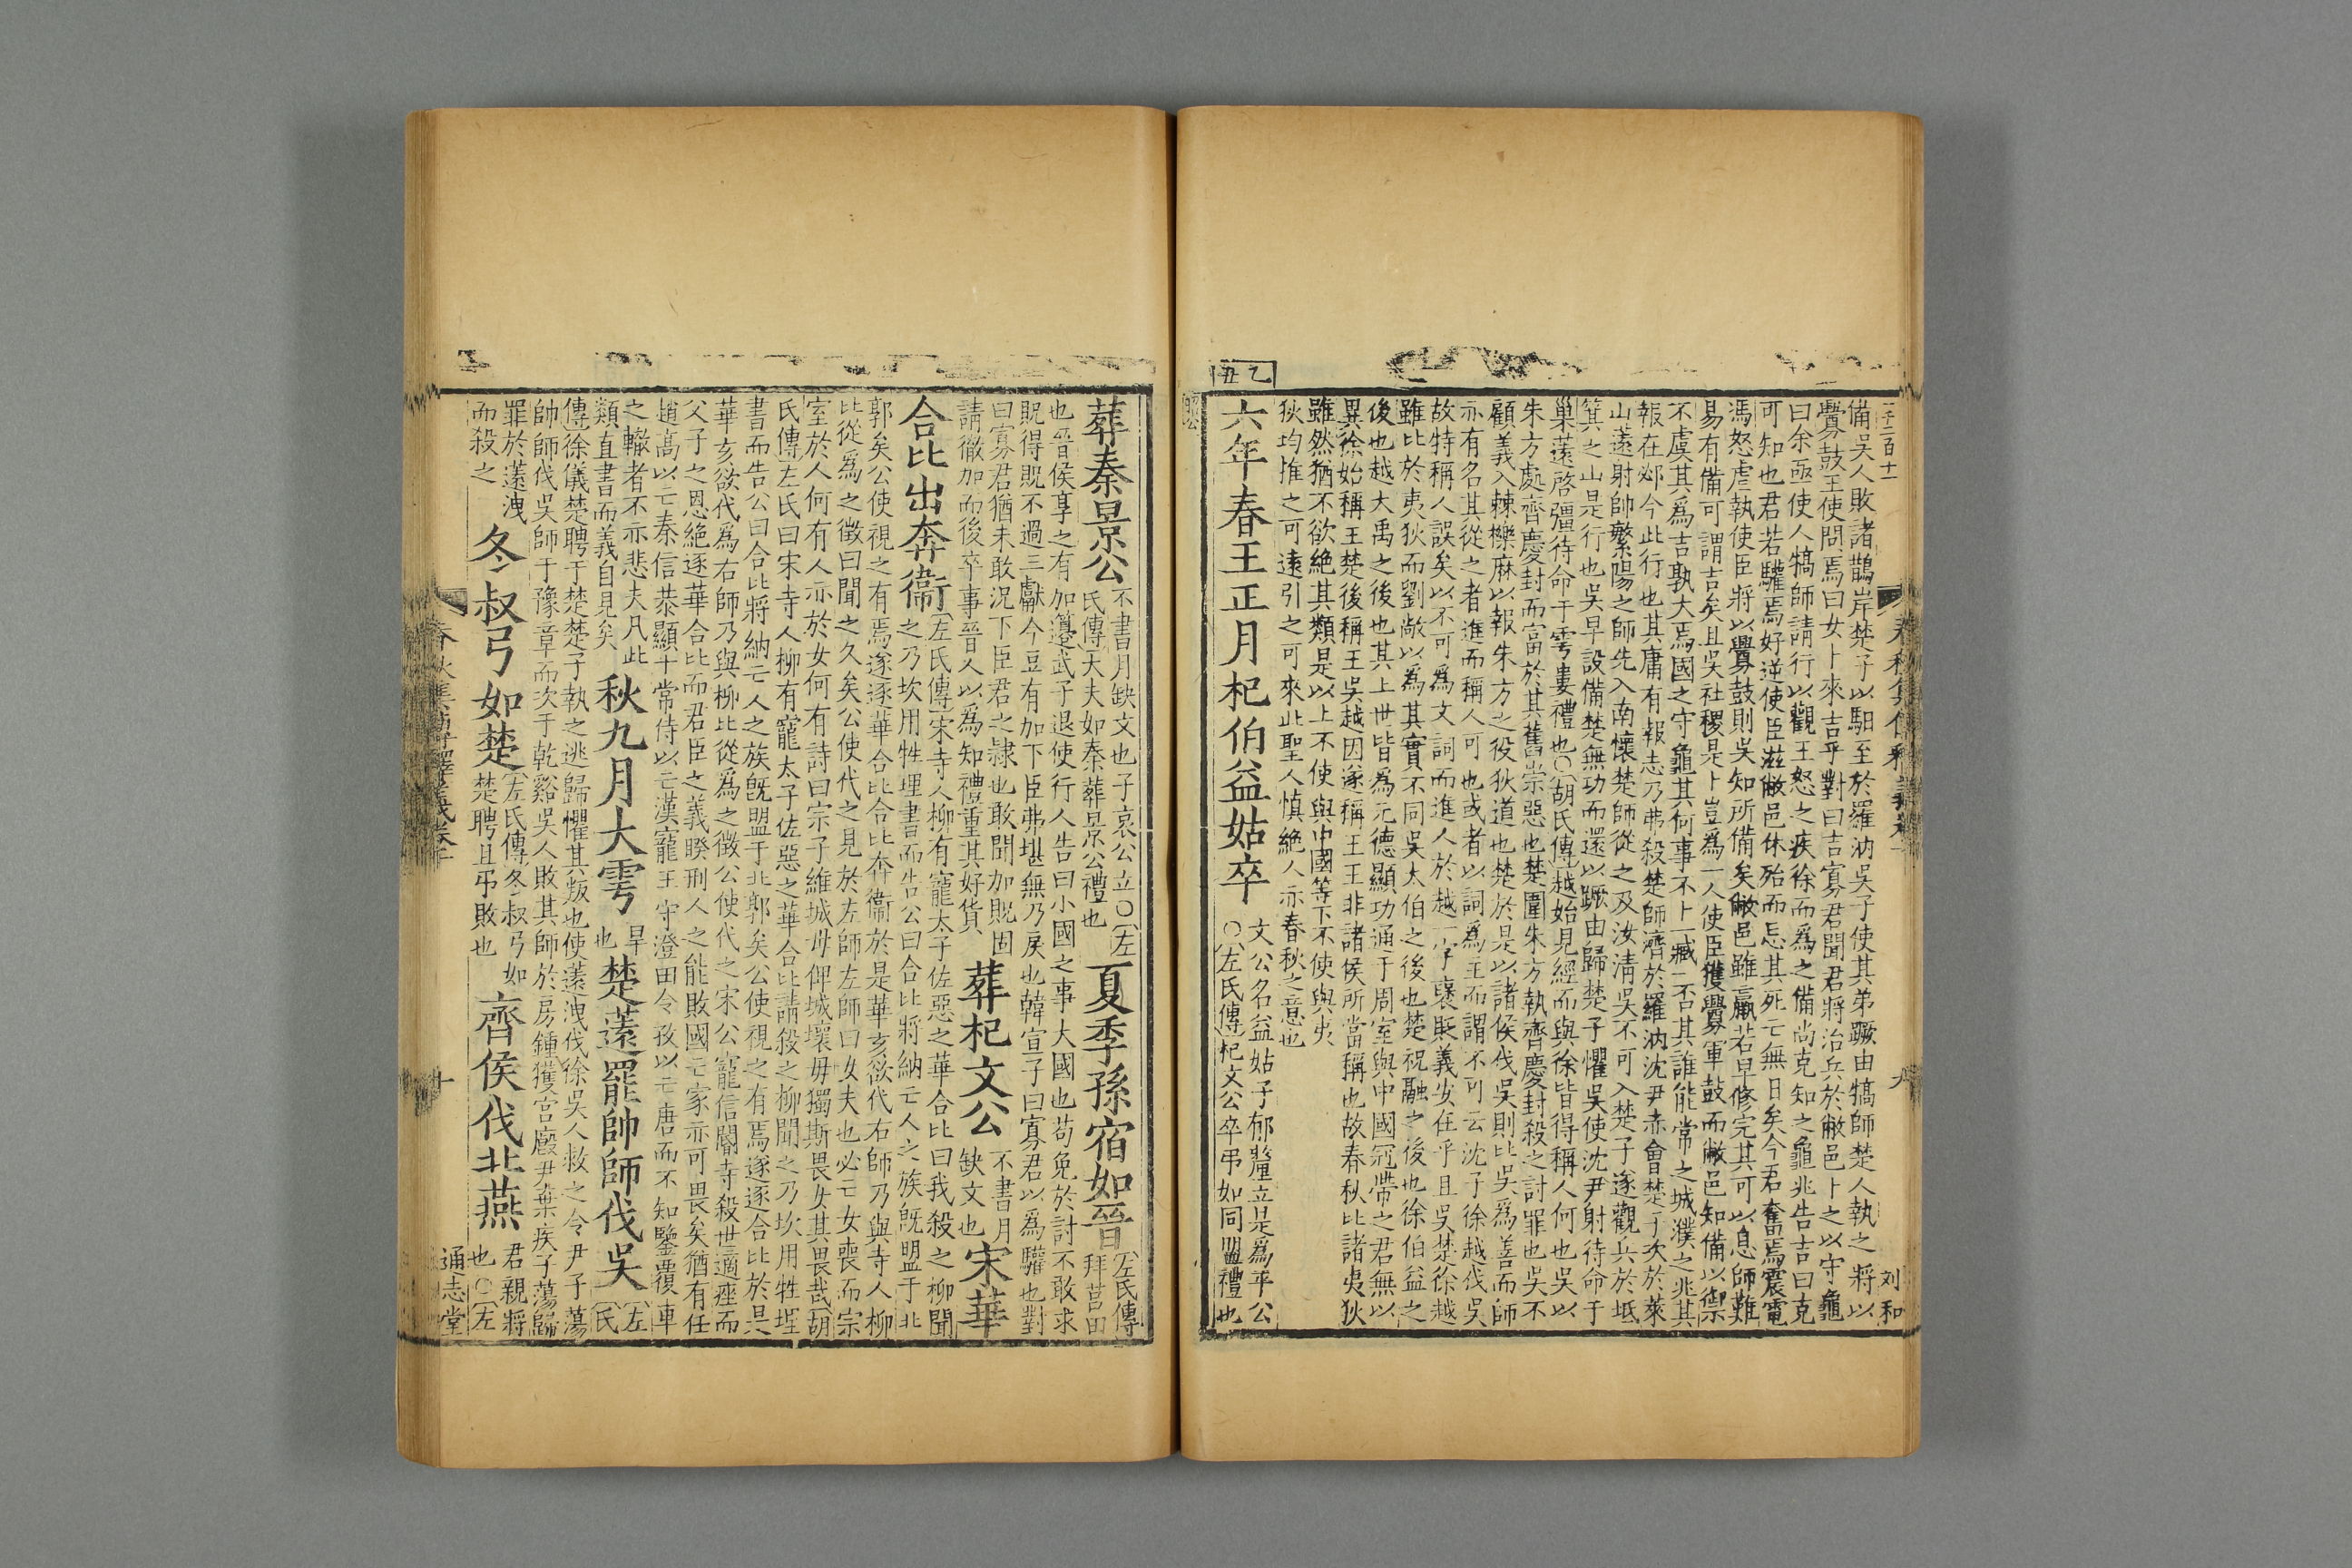 備吳人敗諸鵲岸楚子以馹至於羅汭吳子使其弟蹶由犒師楚人執之將以
釁鼓王使問焉曰女卜來吉乎對曰吉寡君聞君將治兵於敝邑卜之以守龜
曰余亟使人犒師請行以觀王怒之疾徐而為之備尚克知之龜兆告吉曰克
可知也君若驩焉好逆使臣滋敝邑休殆而忘其死亡無日矣今君奮焉震電
馮怒虐執使臣將以釁鼓則吳知所備矣敝邑雖羸若早修完其可以息師難
易有備可謂吉矣且吳社稷是卜豈為一人使臣獲釁軍鼓而敝邑知備以禦
不虞其為吉孰大焉國之守龜其何事不卜一臧一否其誰能常之城濮之兆其
報在邲今此行也其庸有報志乃弗殺楚師濟於羅汭沈尹赤會楚子次於萊
山薳射帥繁陽之師先入南懷楚師從之及汝清吳不可入楚子遂觀兵於坻
箕之山是行也吳早設備楚無功而還以蹶由歸楚子懼吳使沈尹射待命于
巢薳啓彊待命于雩婁禮也○胡氏傳越始見經而與徐皆得稱人何也吳以
朱方處齊慶封而富於其舊崇惡也楚圍朱方執齊慶封殺之討罪也吳不
顧義入棘櫟麻以報朱方之役狄道也楚於是以諸侯伐吳則比吳為善而師
亦有名其從之者進而稱人可也或者以詞為主而謂不可云沈子徐越伐吳
故特稱人誤矣以不可為文詞而進人於越一字褒貶義安在乎且吳楚徐越
雖比於夷狄而劉敞以為其實不同吳太伯之後也楚祝融之後也徐伯益之
後也越大禹之後也其上世皆為元德顯功通于周室與中國冠帶之君無以
異徐始稱王楚後稱王吳越因遂稱王王非諸侯所當稱也故春秋比諸夷狄
雖然猶不欲絕其類是以上不使與中國等下不使與夷
狄均推之可遠引之可來此聖人慎絕人亦春秋之意也
乙丑
六年春王正月杞伯益姑卒
文公名益姑子郁釐立是為平公
○左氏傳杞文公卒弔如同盟禮也
葬秦景公
不書月缺文也子哀公立○左
氏傳大夫如秦葬景公禮也
夏季孫宿如晉
左氏傳
拜莒田
也晉侯享之有加籩武子退使行人告曰小國之事大國也苟免於討不敢求
貺得貺不過三獻今豆有加下臣弗堪無乃戾也韓宣子曰寡君以為驩也對
曰寡君猶未敢況下臣君之隸也敢聞加貺固
請徹加而後卒事晉人以為知禮重其好貨
葬杞文公
不書月
缺文也
宋華
合比出奔衞
左氏傳宋寺人柳有寵太子佐惡之華合比曰我殺之柳聞
之乃坎用牲埋書而告公曰合比將納亡人之族既盟于北
郭矣公使視之有焉遂逐華合比合比奔衞於是華亥欲代右師乃與寺人柳
比從為之徵曰聞之久矣公使代之見於左師左師曰女夫也必亡女喪而宗
室於人何有人亦於女何有詩曰宗子維城毋俾城壞毋獨斯畏女其畏哉胡
氏傳左氏曰宋寺人柳有寵太子佐惡之華合比請殺之柳聞之乃坎用牲埋
書而告公曰合比將納亡人之族既盟于北郭矣公使視之有焉遂逐合比於是
華亥欲代為右師乃與柳比從為之徵公使代之宋公寵信閽寺殺世適痤而
父子之恩絕逐華合比而君臣之義睽刑人之能敗國亡家亦可畏矣猶有任
趙高以亡秦信恭顯十常侍以亡漢寵王守澄田令孜以亡唐而不知鑒覆車
之轍者不亦悲夫凡此
類直書而義自見矣
秋九月大雩
旱
也
楚薳罷帥師伐吳
左
氏
傳徐儀楚聘于楚楚子執之逃歸懼其叛也使薳洩伐徐吳人救之令尹子蕩
帥師伐吳師于豫章而次于乾谿吳人敗其師於房鍾獲宮廄尹棄疾子蕩歸
罪於薳洩
而殺之
冬叔弓如楚
左氏傳冬叔弓如
楚聘且弔敗也
齊侯伐北燕
君親將
也○左
通志堂